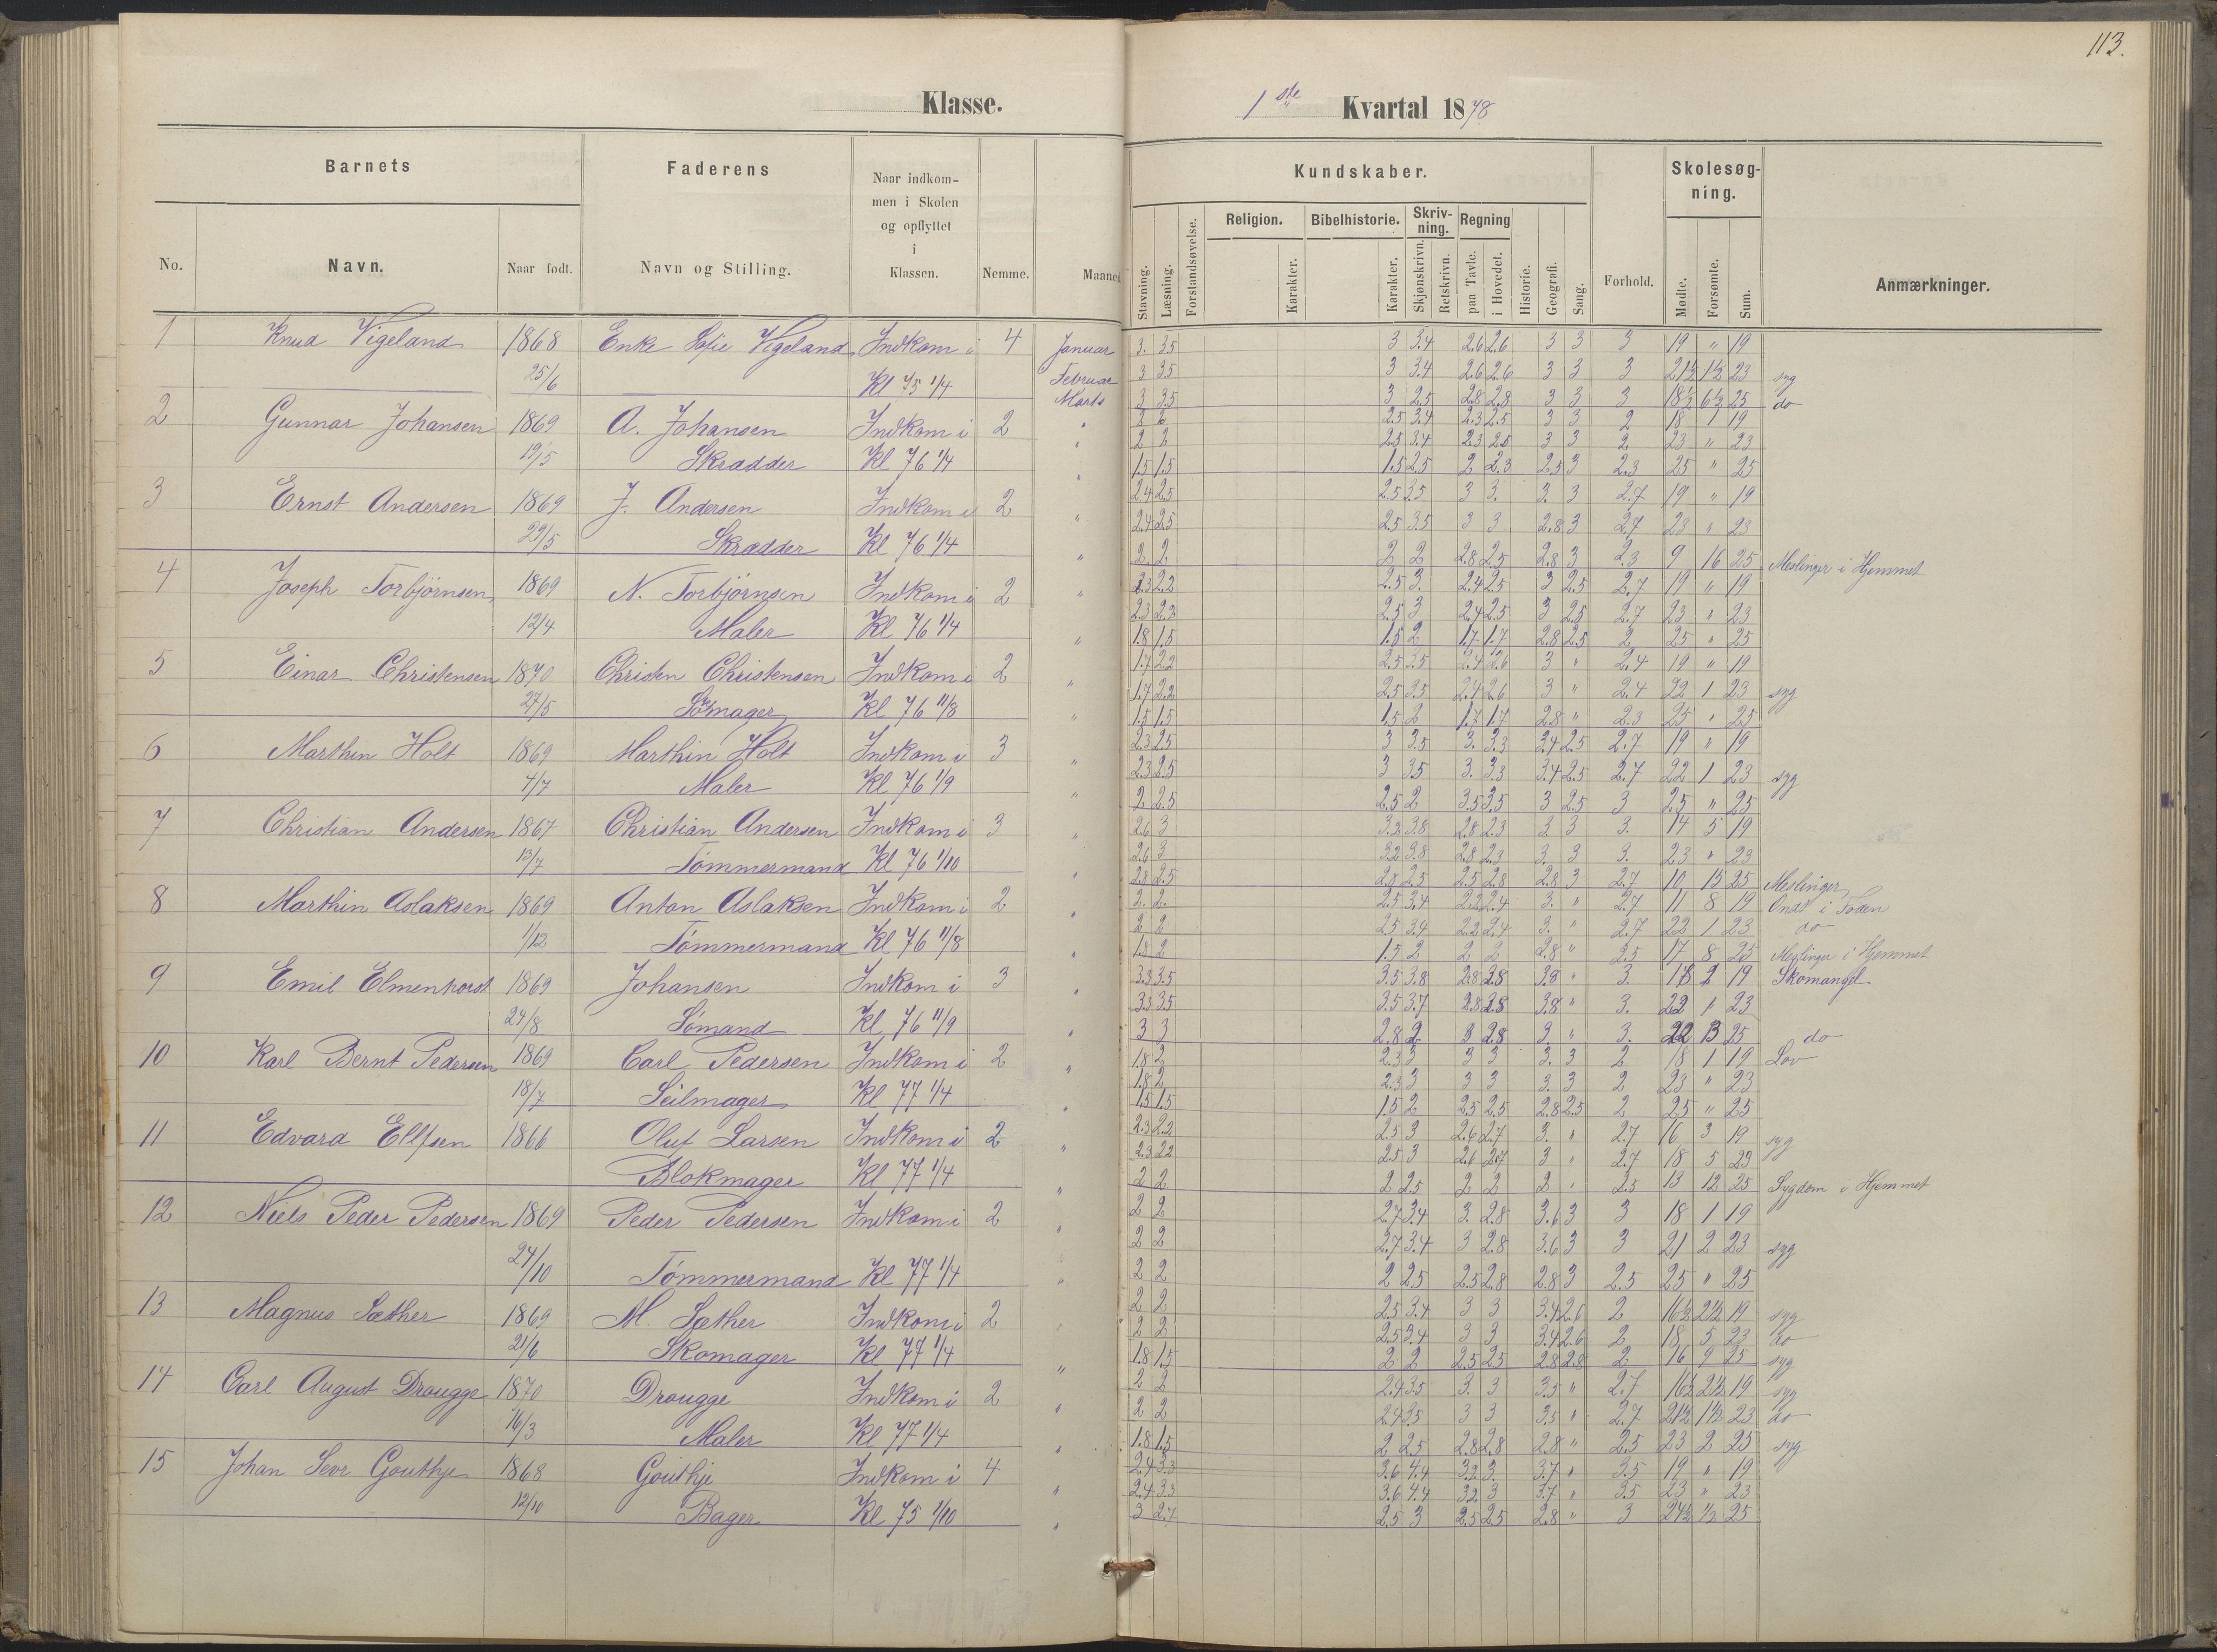 113.
Klasse.
1ste Kvartal 1878
Barnets
Faderens
Naar indkommen i Skolen og opflyttet i Klassen.
Nemme.
Maaned
No.
Navn.
Naar født.
Navn og Stilling.
Kundskaber.
Skolesøgning.
Religion.
Bibelhistorie.
Skrivning.
Regning
Stavning.
Læsning.
Forstandsøvelse.
Karakter.
Karakter.
Skjønskrivn.
Retskrivn.
paa Tavle.
i Hovedet.
Historie.
Geografi.
Sang.
Forhold.
Mødte.
Forsømte.
Sum.
Anmærkninger.
1 Knud Vigeland 1868 Enke Sofie Vigeland Indkom i 4 Januar 3. 3.5 3 3.4 2.6 2.6 3 3 3 19 " 19
25/6 Kl 75 1/4 Februar 3 3.5 3 3.4 2.6 2.6 3 3 3 21½ 1½ 23 syg
Marts 3 3.5 3 2.5 2.8 2.8 3 3 3 18½ 6½ 25 do
2 Gunnar Johansen 1869 A. Johansen Indkom i 2 " 2 2 2.5 3.4 2.3 2.5 3 3 2 18 1 19
19/5 Skrædder Kl 76 1/4 " 2 2 2.5 3.4 2.3 2.5 3 3 2 23 " 23
" 1.5 1.5 1.5 2.5 2 2.3 2.5 3 2.3 25 " 25
3 Ernst Andersen 1869 J. Andersen Indkom i 2 " 2.4 2.5 2.5 3.5 3 3. 3. 3 2.7 19 " 19
29/5 Skrædder Kl 76 1/4 " 2.4 2.5 2.5 3.5 3 3 2.8 3 2.7 23 " 23
2 2 2 2 2.8 2.5 2.8 3 2.3 9 16 25 Meslinger i Hjemmet
4 Joseph Torbjørnsen 1869 N. Torbjørnsen Indkom i 2 " 2.3 2.2 2.5 3. 2.4 2.5 3 2.5 2.7 19 " 19
12/4 Maler Kl 76 1/4 2.3 2.2 2.5 3 2.4 2.5 3 2.5 2.7 23 " 23
" 1.8 1.5 1.5 2 1.7 1.7 2.8 2.5 2 25 " 25
5 Einar Christensen 1870 Christen Christensen Indkom i 2 1.7 2.2 2.5 3.5 2.4 2.6 3 " 2.4 19 " 19
27/5 Kl 76 11/8 " 1.7 2.2 2.5 3.5 2.4 2.6 3 " 2.4 22 1 23 syg
" 1.5 1.5 1.5 2 1.7 1.7 2.8 " 2.3 25 " 25
6 Marthin Holt 1869 Marthin Holt Indkom i 3 2.3 2.5 3 3.5 3. 3.3 3.4 2.5 2.7 19 " 19
4/7 Maler Kl 76 1/9 " 2.3 2.5 3 3.5 3. 3.3 3.4 2.5 2.7 22 1 23 syg
" 2 2.5 2.5 2 3.5 3.5 3 2.5 3 25 " 25
7 Christian Andersen 1867 Christian Andersen Indkom i 3 " 2.6 3 3.2 3.8 2.8 2.3 3 3 3. 14 5 19
13/7 Tømmermand Kl 76 1/10 2.6 3 3.2 3.8 2.8 2.3 3. 3 3. 23 " 23
" 2.8 2.5 2.8 2.5 2.5 2.8 2.8 3 2.7 10 15 25 Meslinger
8 Marthin Aslaksen 1869 Anton Aslaksen Indkom i 2 " 2. 2. 2.5 3.4 2.2 2.4 3. " 2.7 11 8 19 Ondt i Foden
1/12 Tømmermand Kl 76 11/8 2 2 2.5 3.4 2.2 2.4 3. " 2.7 22 1 23 do
" 1.5 2 1.5 2 2 2 2.8 " 2.5 17 8 25 Meslinger i Hjemmet
9 Emil Elmenhorst 1869 Johansen Indkom i 3 " 3.3 3.5 3.5 3.8 2.8 3.8 3.8 " 3. 19 Skomangel
24/8 Sømand Kl 76 11/9 3.3 3.5 3.5 3.7 2.8 2.8 3.8 " 3. 22 1 23
" 3 3 2.8 2 3 2.8 3 " 3. 25 do
10 Karl Bernt Pedersen 1869 Carl Pedersen Indkom i 2 " 1.8 2 2.3 3 3 3 3. 3 2 18 1 19 Lov
18/7 Seilmager Kl 77 1/4 1.8 2 2.3 3 3 3 3. 3 2 23 " 23
" 1.5 1.5 1.5 2 2.5 2.5 2.8 2.5 2 25 " 25
11 Edvard Ellefsen 1866 Oluf Larsen Indkom i 2 " 2.3 2.2 2.5 3 2.6 2.7 3. " 2.7 16 3 19 syg
Blokmager Kl 77 1/4 2.3 2.2 2.5 3 2.6 2.7 3 " 2.7 18 5 23
" 2 2 2 2.5 2 2 2 " 2.5 13 12 25 Sygdom i Hjemmet
12 Niels Peder Pedersen 1869 Peder Pedersen Indkom i 2 " 2 2 2.7 3.4 3. 2.8 3.6 3 3 18 1 19
24/10 Tømmermand Kl 77 1/4 " 2 2 2.7 3.4 3 2.8 3.6 3 3 21 2 23 syg
" 2 2 2 2.5 2.5 2.8 2.8 3 2.5 25 " 25
13 Magnus Sæther 1869 M. Sæther Indkom i 2 2 2 2.5 3.4 3 3 3.4 2.6 2 16½ 2½ 19 syg
21/6 Skomager Kl 77 1/4 2 2 2.5 3.4 3 3 3.4 2.6 2 18 5 23 do
" 1.8 1.5 2 2 2.5 2.5 2.8 2.8 2 16 9 25 syg
14 Carl August Drougge 1870 Drougge Indkom i 2 2 2 2.4 3.5 3. 3 3.5 " 2.7 16½ 2½ 19 syg
16/3 Maler Kl 77 1/4 " 2 2 2.4 3.5 3 3 3.5 " 2.7 21½ 1½ 23 do
" 1.8 1.5 2 2.5 2.8 2.8 2.8 " 2.5 23 2 25 syg
15 Johan Gouthje 1868 Gouthje Indkom i 4 2.4 3.3 3.6 4.4 3.2 3 3.7 " 3.5 19 " 19
12/10 Bager Kl 75 1/10 " 2.4 3.3 3.6 4.4 3.2 3 3.7 " 3.5 23 " 23
" 3 2.7 2.5 3 2.5 2.5 2.8 " 3 24½ ½ 25